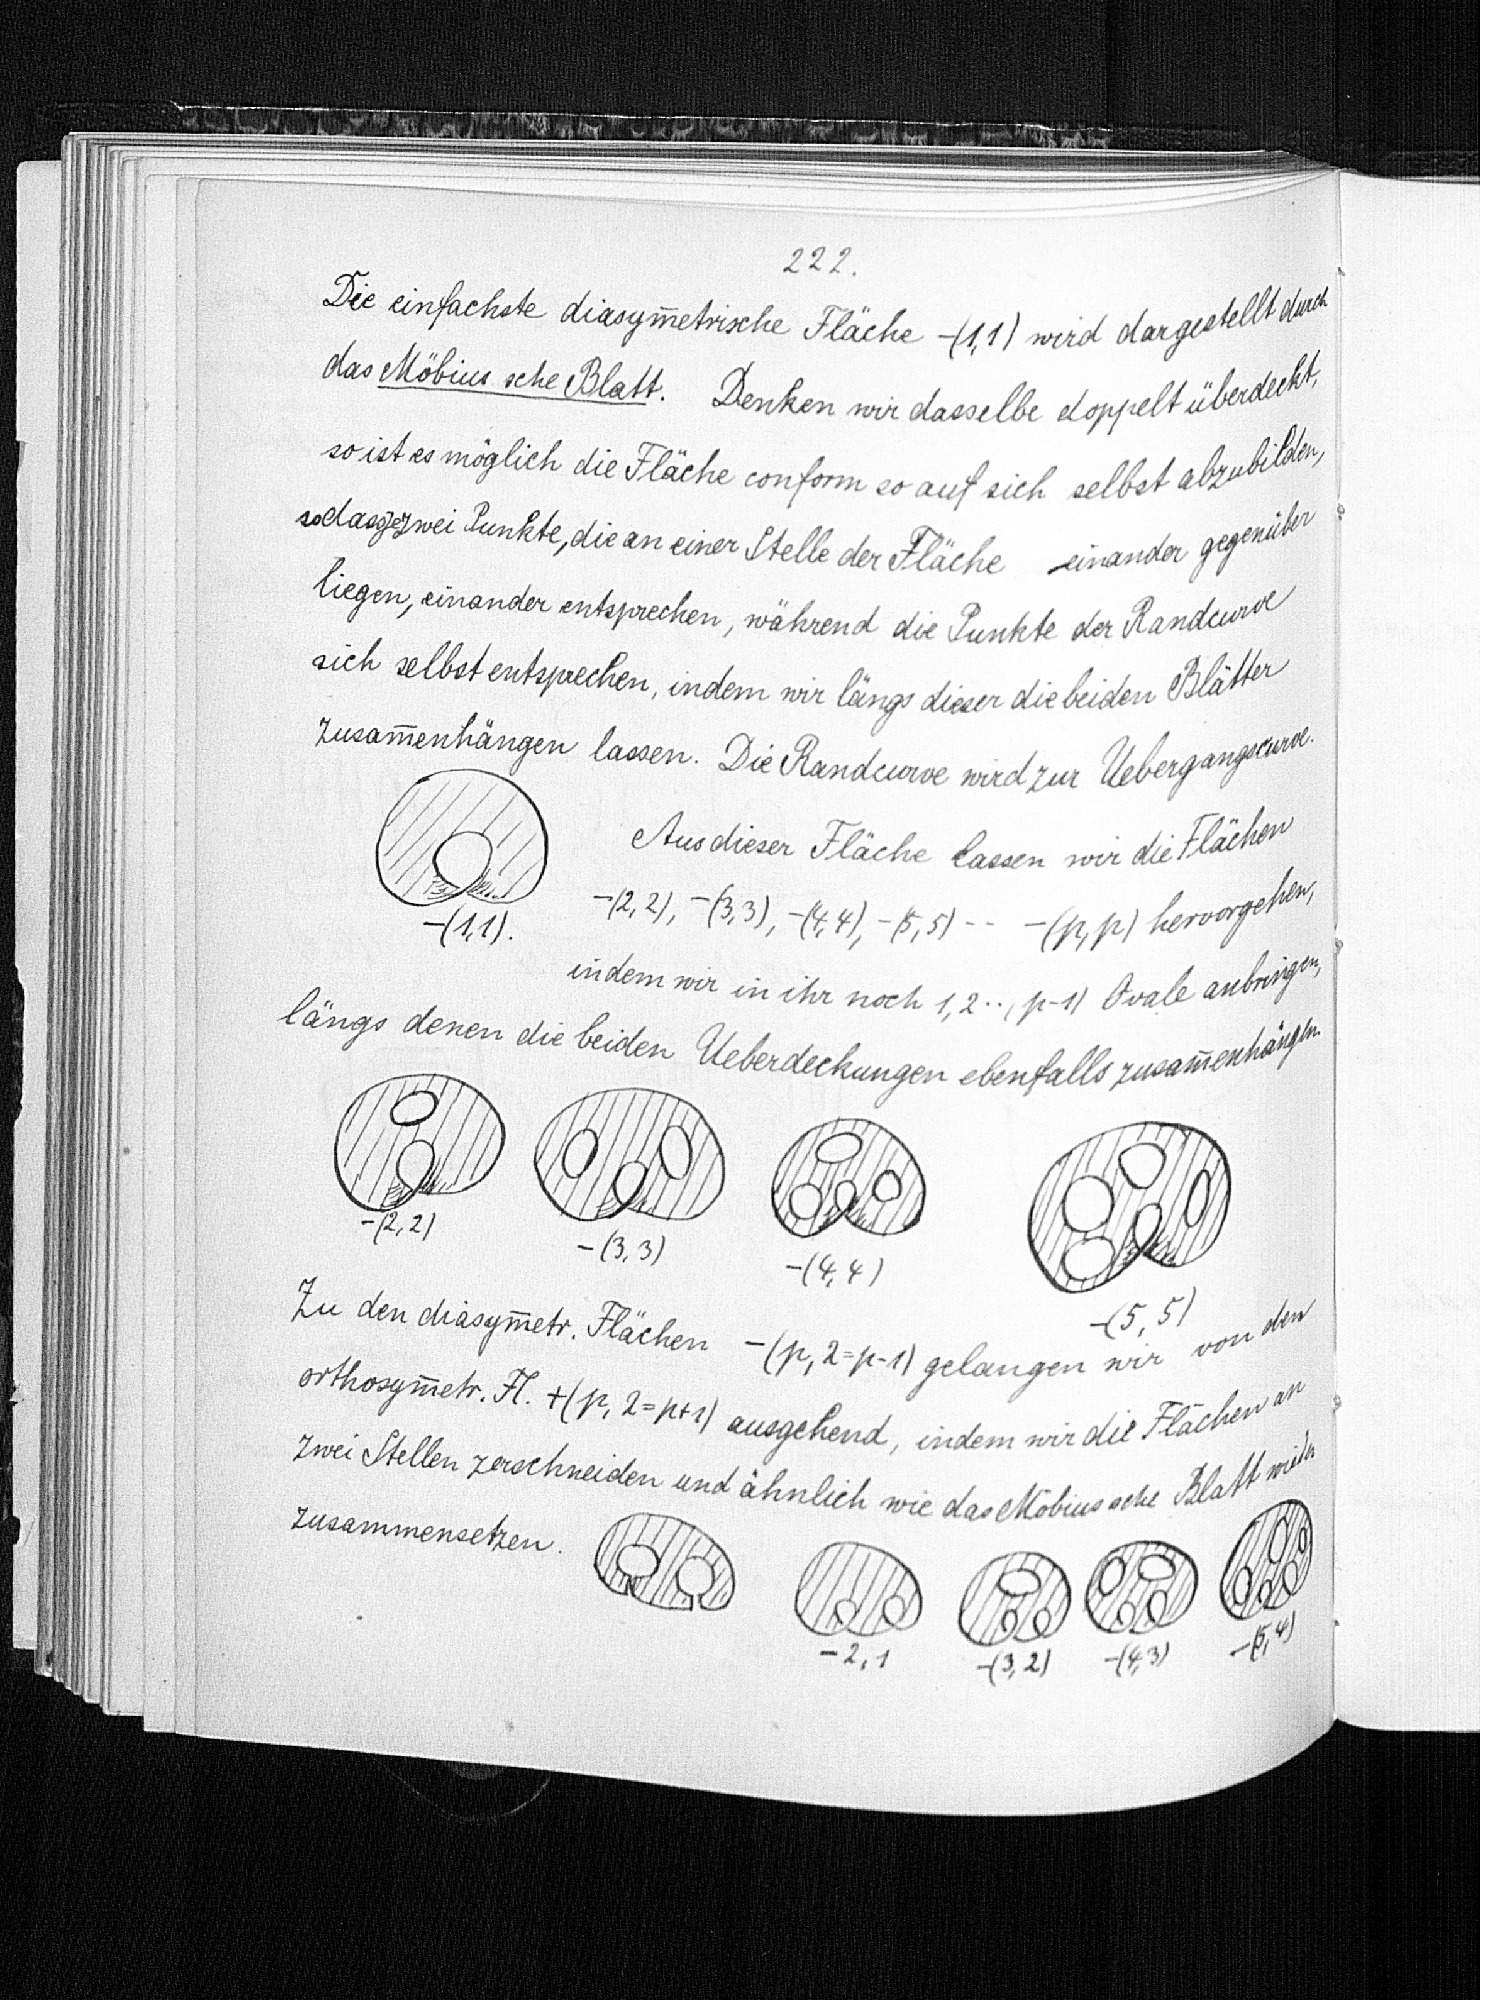 222.
Die einfachste diasym̅etrische Fläche -(1,1) wird dargestellt durch
das Möbius sche Blatt. Denken wir dasselbe doppelt überdeckt,
so ist es möglich die Fläche conform so auf sich selbst abzubilden,
sodass zwei Punkte, die an einer Stelle der Fläche einander gegenüber
liegen, einander entsprechen, während die Punkte der Randcurve
sich selbst entsprechen, indem wir längs dieser die beiden Blätter
zusam̅enhängen lassen. Die Randcurve wird zur Uebergangscurve.
Aus dieser Fläche lassen wir die Flächen
-(1,1).
-(2,2), -(3,3), -(4,4), -(5,5) -- -(p,p) hervorgehen,
indem wir in ihr noch 1,2.., p-1) Ovale anbringen,
längs denen die beiden Ueberdeckungen ebenfalls zusam̅enhängen.
-(2,2)
-(3,3)
-(4,4)
-(5,5)
Zu den diasym̅etr. Flächen -(p, 2=p-1) gelangen wir von den
orthosym̅etr. Fl. +(p, 2=p+1) ausgehend, indem wir die Flächen an
zwei Stellen zerschneiden und ähnlich wie das Möbius sche Blatt wieder
zusammensetzen.
-2,1
-(3,2)
-(4,3)
-(5,4)